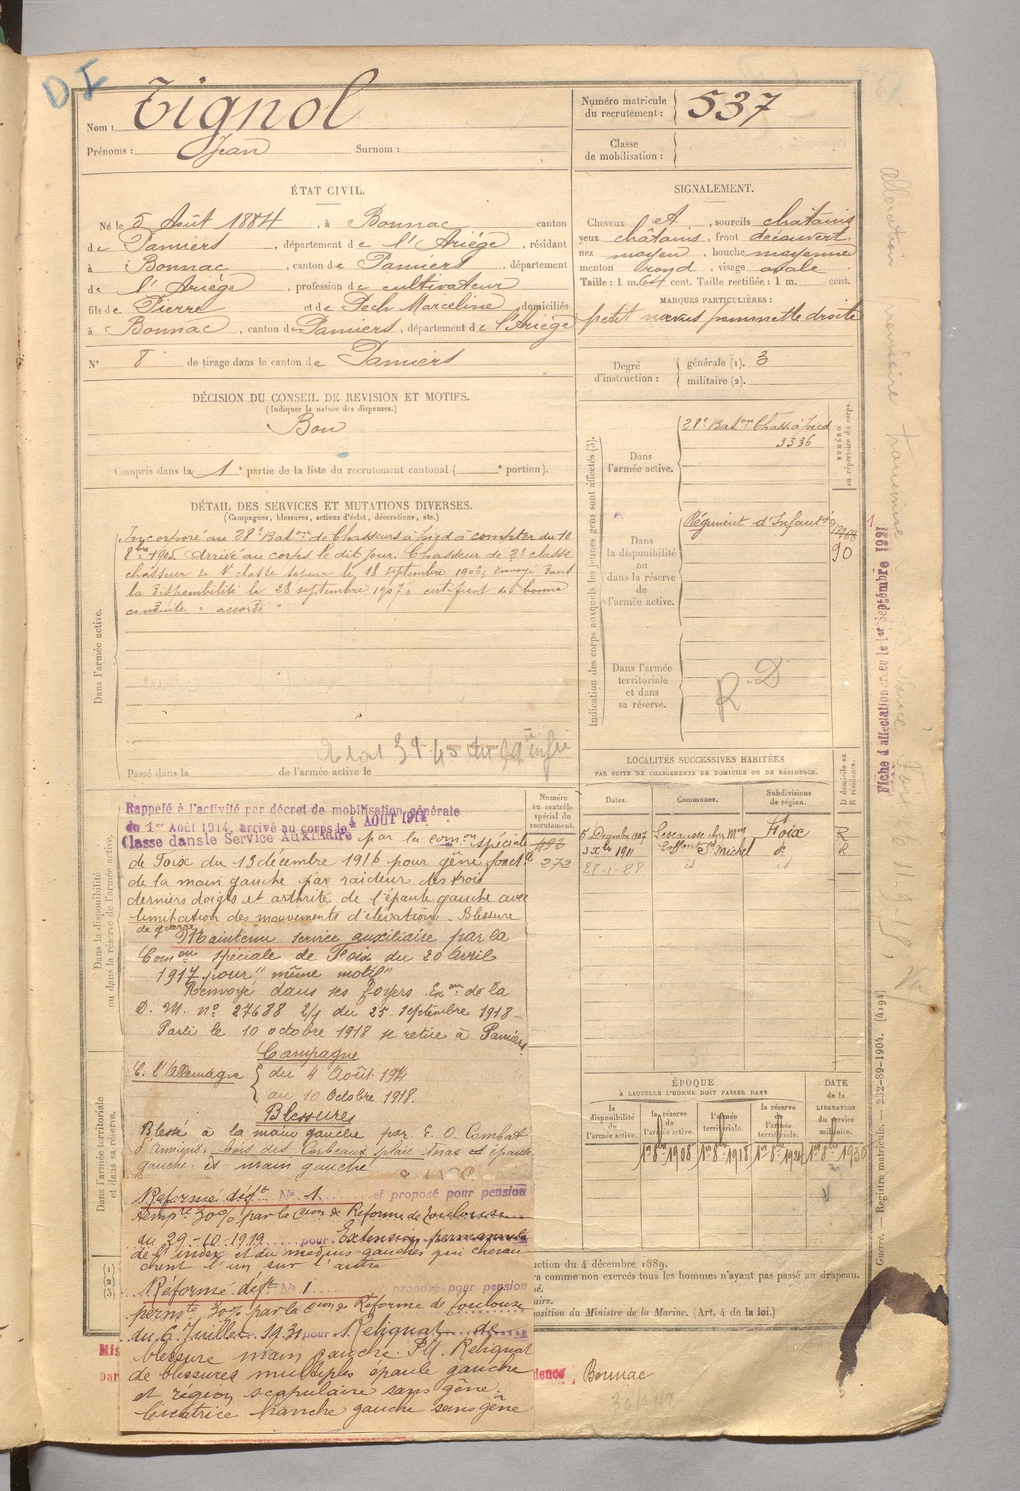 D I
Nom : Tignol
Prénoms : Jean Surnom :
Numéro matricule du recrutement : 537
Classe de mobilisation :
ÉTAT CIVIL.
Né le 5 Août 1884, à Bonnac canton
de Pamiers, département de l'Ariège, résidant
à Bonnac, canton de Pamiers, département
de l'Ariège, profession de cultivateur
fils de Pierre et de Pech Marceline domiciliés
à Bonnac, canton de Pamiers, département de l'Ariège
N° 8 de tirage dans le canton de Pamiers
SIGNALEMENT.
Cheveux et, sourcils châtains
yeux châtains, front découvert
nez moyen, bouche moyenne
menton rond, visage ovale
Taille : 1 m. 64 cent. Taille rectifiée : 1 m. cent.
MARQUES PARTICULIÈRES :
petit nævus pommette droite
Degré d'instruction : générale (1). 3
militaire (2).
DÉCISION DU CONSEIL DE REVISION ET MOTIFS.
(Indiquer la nature des dispenses.)
Bon
Compris dans la 1e partie de la liste du recrutement cantonal ( e portion).
DÉTAIL DES SERVICES ET MUTATIONS DIVERSES.
(Campagnes, blessures, actions d'éclat, décorations, etc.)
Dans l'armée active.
Incorporé au 28e Baton de Chasseurs à pied à compter du 10
8bre 1905. Arrivé au corps le dit jour. Chasseur de 2e classe
chasseur de 1e classe sapeur le 18 septembre 1906; envoyé dans
la disponibilité le 28 septembre 1907; certificat de bonne
conduite " accordé "
Passé dans la de l'armée active le
Indication des corps auxquels les jeunes gens sont affectés (3).
NUMÉRO au répertoire du corps.
Dans l'armée active.
28e Baton Chass. à pied
3336
Dans la disponibilité ou dans la réserve de l'armée active.
Régiment d'Infanterie
90
Dans l'armée territoriale et dans sa réserve.
R. D
LOCALITÉS SUCCESSIVES HABITÉES
PAR SUITE DE CHANGEMENTS DE DOMICILE OU DE RÉSIDENCE.
Numéro au contrôle spécial du recrutement.
Dates. Communes. Subdivisions de région. D domicile ou R résidence.
272
5 Décembre 1907 Foix R
3 Xbre 1911 St Michel d° R
28-1-28 id id
Dans la disponibilité ou dans la réserve de l'armée active.
Rappelé à l'activité par décret de mobilisation générale
du 1er AOUT 1914, arrivé au corps le 4 AOUT 1914
Classé dans le Service Auxiliaire par la comon spéciale
de Foix du 13 décembre 1916 pour gêne fonctlle
de la main gauche par raideur des trois
derniers doigts et arthrite de l'épaule gauche avec
limitation des mouvements d'élévation. Blessure
de guerre.
Maintenu service auxiliaire par la
Comon spéciale de Foix du 20 Avril
1917 pour "même motif"
Renvoyé dans ses foyers Exon de la
D. M. n° 27638 2/1 du 25 septembre 1918 -
Parti le 10 octobre 1918 se retire à Pamiers.
Campagne
C. l'Allemagne { du 4 Août 1914
au 10 Octobre 1918.
Blessures
Blessé à la main gauche par E. O Combat
bois des Corbeaux plaie bras et épaule
gauche et main gauche
Dans l'armée territoriale et dans sa réserve.
Réformé déft N° 1 et proposé pour pension
tempre 30% par la Cion de Réforme de Toulouse
du 29-10-1919 pour Extension permanente
de l'index et du médius gauches qui chevau
chent l'un sur l'autre
Réformé déft N° 1 et proposé pour pension
permte 30% par la Cion de Réforme de Toulouse
du 6 Juillet 1931 pour Reliquat de
blessure main gauche. Reliquat
de blessures multiples épaule gauche
et région scapulaire sans gêne.
Cicatrice hanche gauche sans gêne
ÉPOQUE
À LAQUELLE L'HOMME DOIT PASSER DANS
la disponibilité de l'armée active.
la réserve de l'armée active.
l'armée territoriale.
la réserve de l'armée territoriale.
DATE de la LIBÉRATION du service militaire.
1er 8bre 1908
1er 8bre 1918
1er 8bre 1924
1er 8bre 1930
uction du 4 décembre 1889.
ra comme non exercés tous les hommes n'ayant pas passé au drapeau.
né.
aire.
position du Ministre de la Marine. (Art. 4 de la loi.)
Mis
par
dence, Bonnac
Fiche d'affectation créée le 1er Septembre 1921
Guerre. — Registre matricule. — 232-89-1904. [4194]